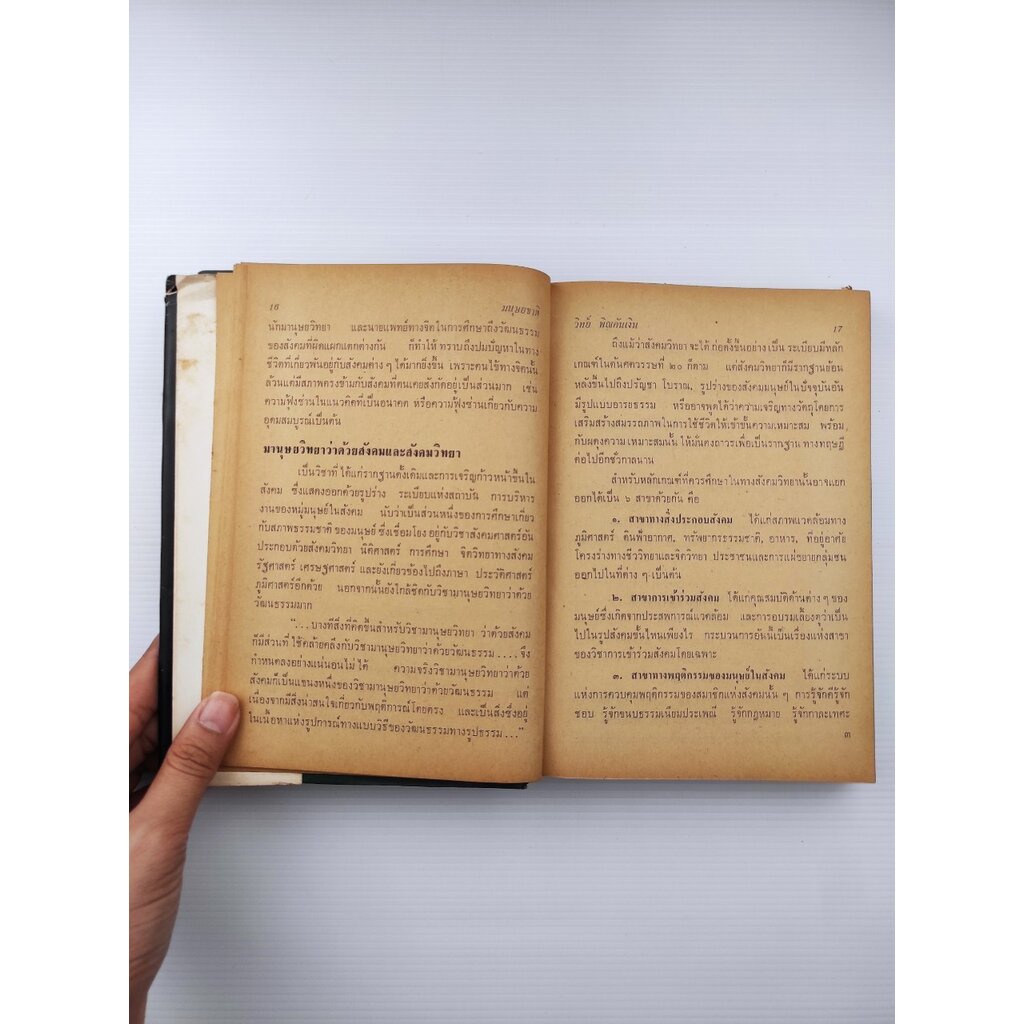 16 มนุษยชาติ
นักมานุษยวิทยา และนายแพทย์ทางจิตในการศึกษาถึงวัฒนธรรม
ของสังคมที่ผิดแผกแตกต่างกัน ก็ทำให้ ทราบถึงปมปัญหาในทาง
ชีวิตที่เกี่ยวพันอยู่กับสังคมต่าง ๆ ได้มากยิ่งขึ้น เพราะคนไข้ทางจิตนั้น
ล้วนแต่มีสภาพตรงข้ามกับสังคมที่ตนเคยสังกัดอยู่เป็นส่วนมาก เช่น
ความฟุ้งซ่านในแนวคิดที่เป็นอนาคต หรือความฟุ้งซ่านเกี่ยวกับความ
อุดมสมบูรณ์เป็นต้น
มานุษยวิทยาว่าด้วยสังคมและสังคมวิทยา
เป็นวิชาที่ ได้แก่รากฐานดั้งเดิมและการเจริญก้าวหน้าขึ้นใน
สังคม ซึ่งแสดงออกด้วยรูปร่าง ระเบียบแห่งสถาบัน การบริหาร
งานของหมู่มนุษย์ในสังคม นับว่าเป็นส่วนหนึ่งของการศึกษาเกี่ยว
กับสภาพธรรมชาติ ของมนุษย์ ซึ่งเชื่อมโยง อยู่กับวิชาสังคมศาสตร์อัน
ประกอบด้วยสังคมวิทยา นิติศาสตร์ การศึกษา จิตวิทยาทางสังคม
รัฐศาสตร์ เศรษฐศาสตร์ และยังเกี่ยวข้องไปถึงภาษา ประวัติศาสตร์
ภูมิศาสตร์อีกด้วย นอกจากนั้นยังใกล้ชิดกับวิชามานุษยวิทยาว่าด้วย
วัฒนธรรมมาก
“...บางทีสิ่งที่คิดขึ้นสำหรับวิชามานุษยวิทยา ว่าด้วยสังคม
ก็มีส่วนที่ ใช้คล้ายคลึงกับวิชามานุษยวิทยาว่าด้วยวัฒนธรรม....จึง
กำหนดลงอย่างแน่นอนไม่ได้ ความจริงวิชามานุษยวิทยาว่าด้วย
สังคมก็เป็นแขนงหนึ่งของวิชามานุษยวิทยาว่าด้วยวัฒนธรรม แต่
เนื่องจากมีสิ่งน่าสนใจเกี่ยวกับพฤติการณ์โดยตรง และเป็นสิ่งซึ่งอยู่
ในเนื้อหาแห่งรูปการณ์ทางแบบวิธีของวัฒนธรรมทางรูปธรรม...”
วิทย์ พิณคันเงิน 17
ถึงแม้ว่าสังคมวิทยา จะได้ ก่อตั้งขึ้นอย่าง เป็น ระเบียบมีหลัก
เกณฑ์ในต้นศตวรรษที่ ๒๐ ก็ตาม แต่สังคมวิทยาก็มีรากฐานย้อน
หลังขึ้นไปถึงปรัชญา โบราณ, รูปร่างของสังคมมนุษย์ในปัจจุบันอัน
มีรูปแบบอารยธรรม หรืออาจพูดได้ว่าความเจริญทางวัตถุโดยการ
เสริมสร้างสมรรถภาพในการใช้ชีวิตให้เข้าขั้นความเหมาะสม พร้อม
กับผดุงความเหมาะสมนั้น ให้มั่นคงถาวรเพื่อเป็นรากฐาน ทางทฤษฎี
ต่อไปอีกชั่วกาลนาน
สำหรับหลักเกณฑ์ที่ควรศึกษาในทางสังคมวิทยานั้นอาจแยก
ออกได้เป็น ๖ สาขาด้วยกัน คือ
๑. สาขาทางสิ่งประกอบสังคม ได้แก่สภาพแวดล้อมทาง
ภูมิศาสตร์ ดินฟ้าอากาศ, ทรัพยากรธรรมชาติ, อาหาร, ที่อยู่อาศัย
โครงร่างทางชีววิทยาและจิตวิทยา ประชาชนและการแผ่ขยายกลุ่มชน
ออกไปในที่ต่าง ๆ เป็นต้น
๒. สาขาการเข้าร่วมสังคม ได้แก่คุณสมบัติด้านต่าง ๆ ของ
มนุษย์ซึ่งเกิดจากประสพการณ์แวดล้อม และการอบรมเลี้ยงดูว่าเป็น
ไปในรูปสังคมชั้นไหนเพียงไร กระบวนการอันนี้เป็นเรื่องแห่งสาขา
ของวิชาการเข้าร่วมสังคมโดยเฉพาะ
๓. สาขาทางพฤติกรรมของมนุษย์ในสังคม ได้แก่ระบบ
แห่งการควบคุมพฤติกรรมของสมาชิกแห่งสังคมนั้น ๆ การรู้จักดีรู้จัก
ชอบ รู้จักขนบธรรมเนียมประเพณี รู้จักกฎหมาย รู้จักกาละเทศะ
๓